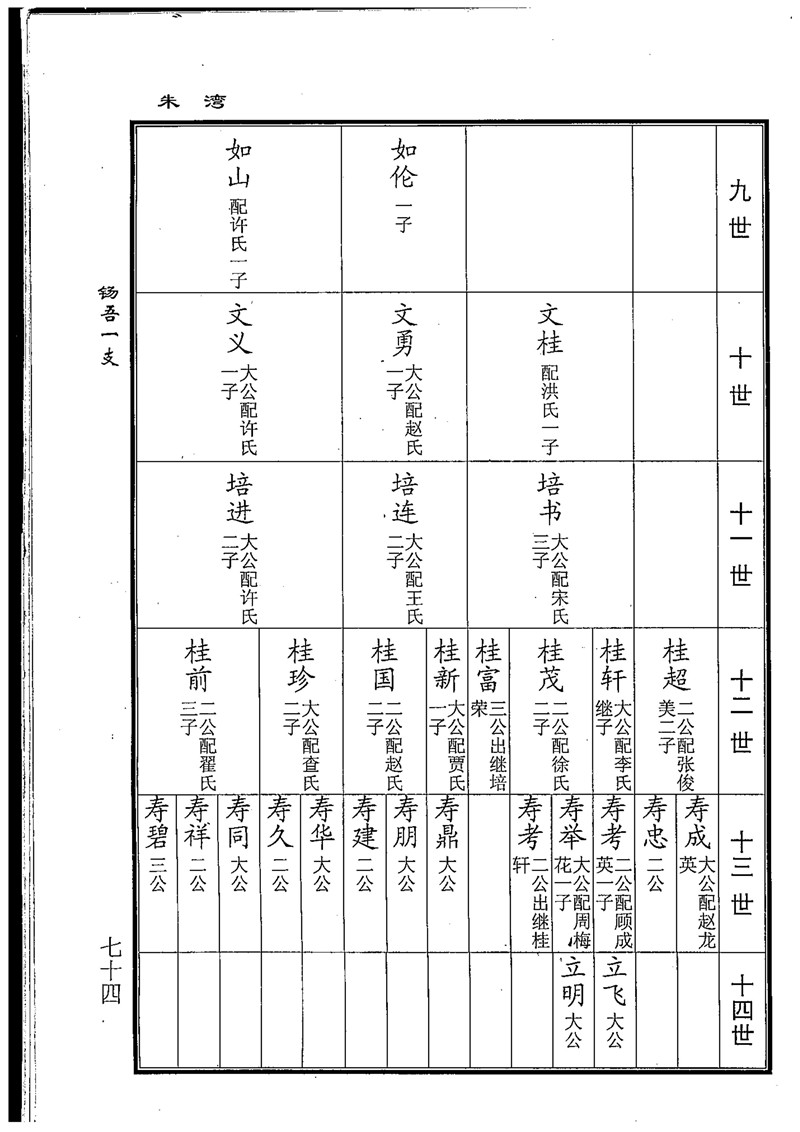 朱湾
钖吾一支
七十四
九世
如伦
一子
如山
配许氏一子
十世
文桂
配洪氏一子
文勇
大公配赵氏
一子
文义
大公配许氏
一子
十一世
培书
大公配宋氏
三子
培连
大公配王氏
二子
培进
大公配许氏
二子
十二世
桂超
二公配张俊
美二子
桂轩
大公配李氏
继子
桂茂
二公配徐氏
二子
桂富
三公出继培
荣
桂新
大公配贾氏
一子
桂国
二公配赵氏
二子
桂珍
大公配查氏
二子
桂前
二公配翟氏
三子
十三世
寿成
大公配赵龙
英
寿忠
二公
寿考
二公配顾成
英一子
寿举
大公配周梅
花一子
寿考
二公出继桂
轩
寿鼎
大公
寿朋
大公
寿建
二公
寿华
大公
寿久
二公
寿同
大公
寿祥
二公
寿碧
三公
十四世
立飞
大公
立明
大公